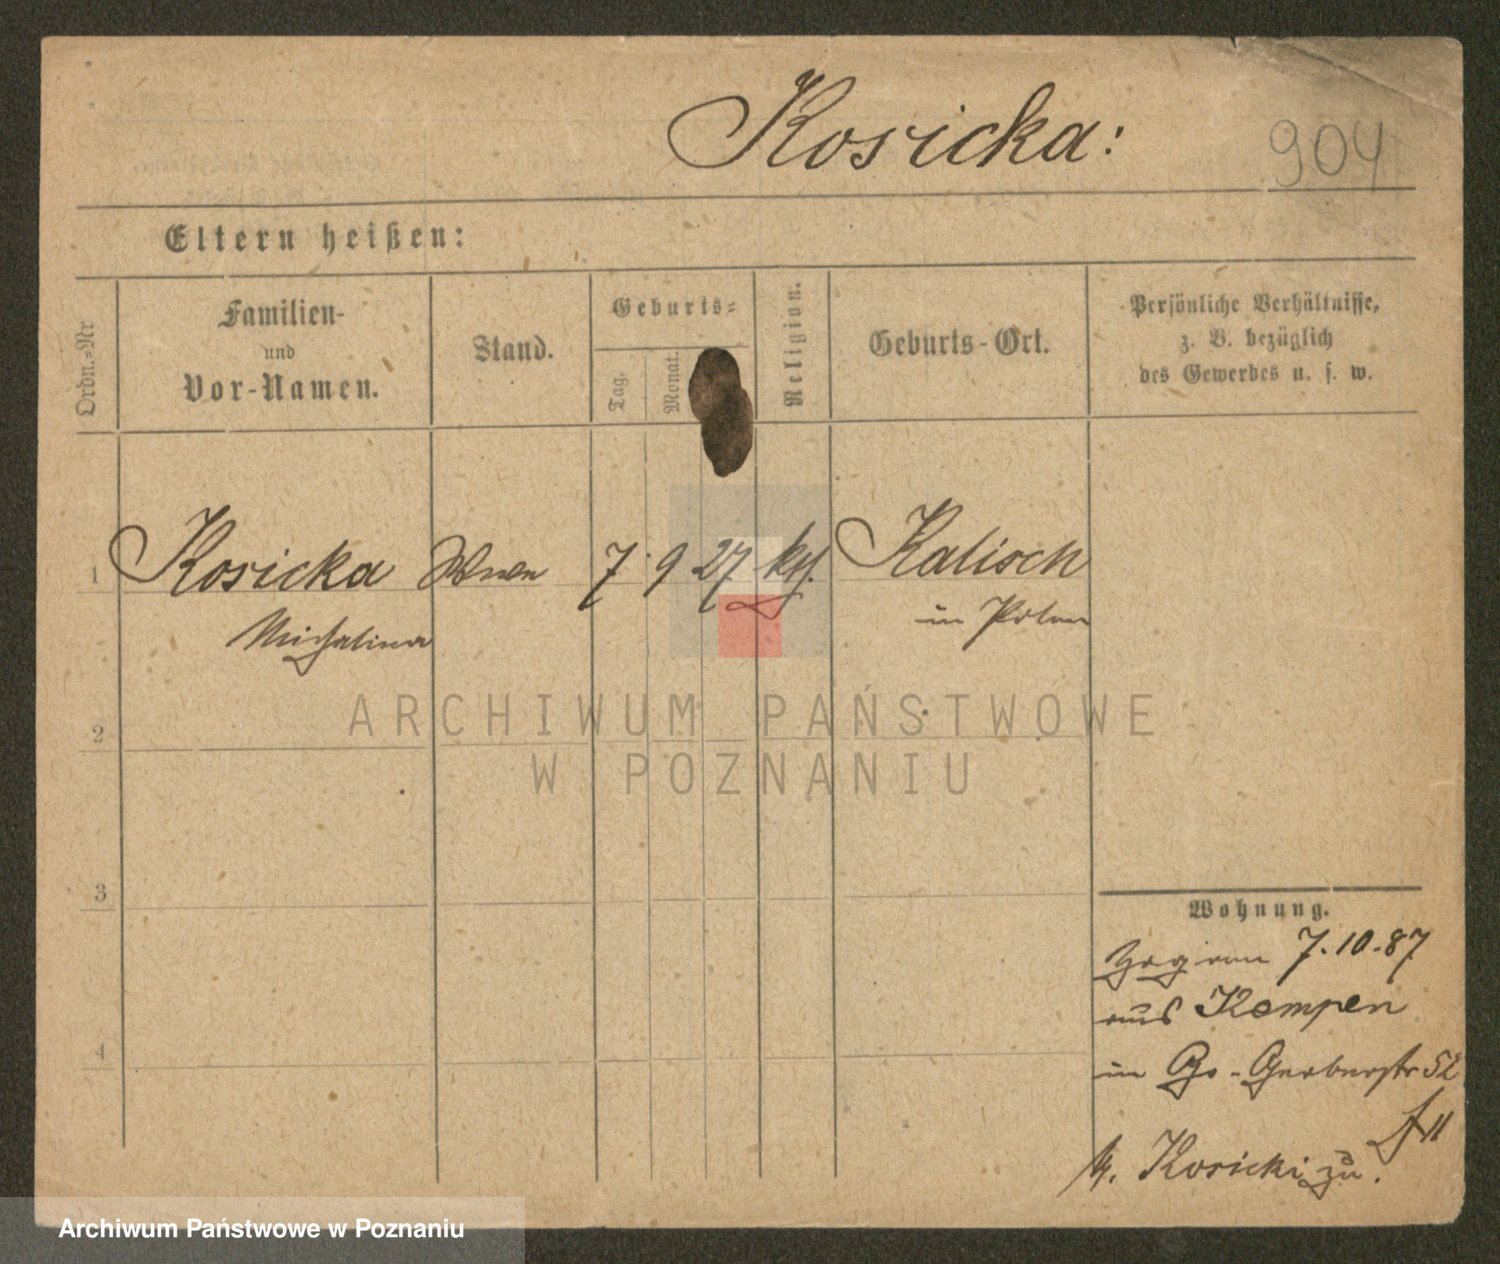 Kosicka:
904
Eltern heißen:
Ordn.-Nr
Familien-
und
Vor-Namen.
Stand.
Geburts-
Tag.
Monat.
Religion.
Geburts-Ort.
Persönliche Verhältnisse,
z. B. bezüglich
des Gewerbes u. s. w.
1 Kosicka Wwe 7 9 27 kth. Kalisch
Michalina in Polen
2
3
4
Wohnung.
7.10.87
aus Kempen
in Gr-Gerberstr 52
Kosicki zu.
ARCHIWUM PAŃSTWOWE
W POZNANIU
Archiwum Państwowe w Poznaniu